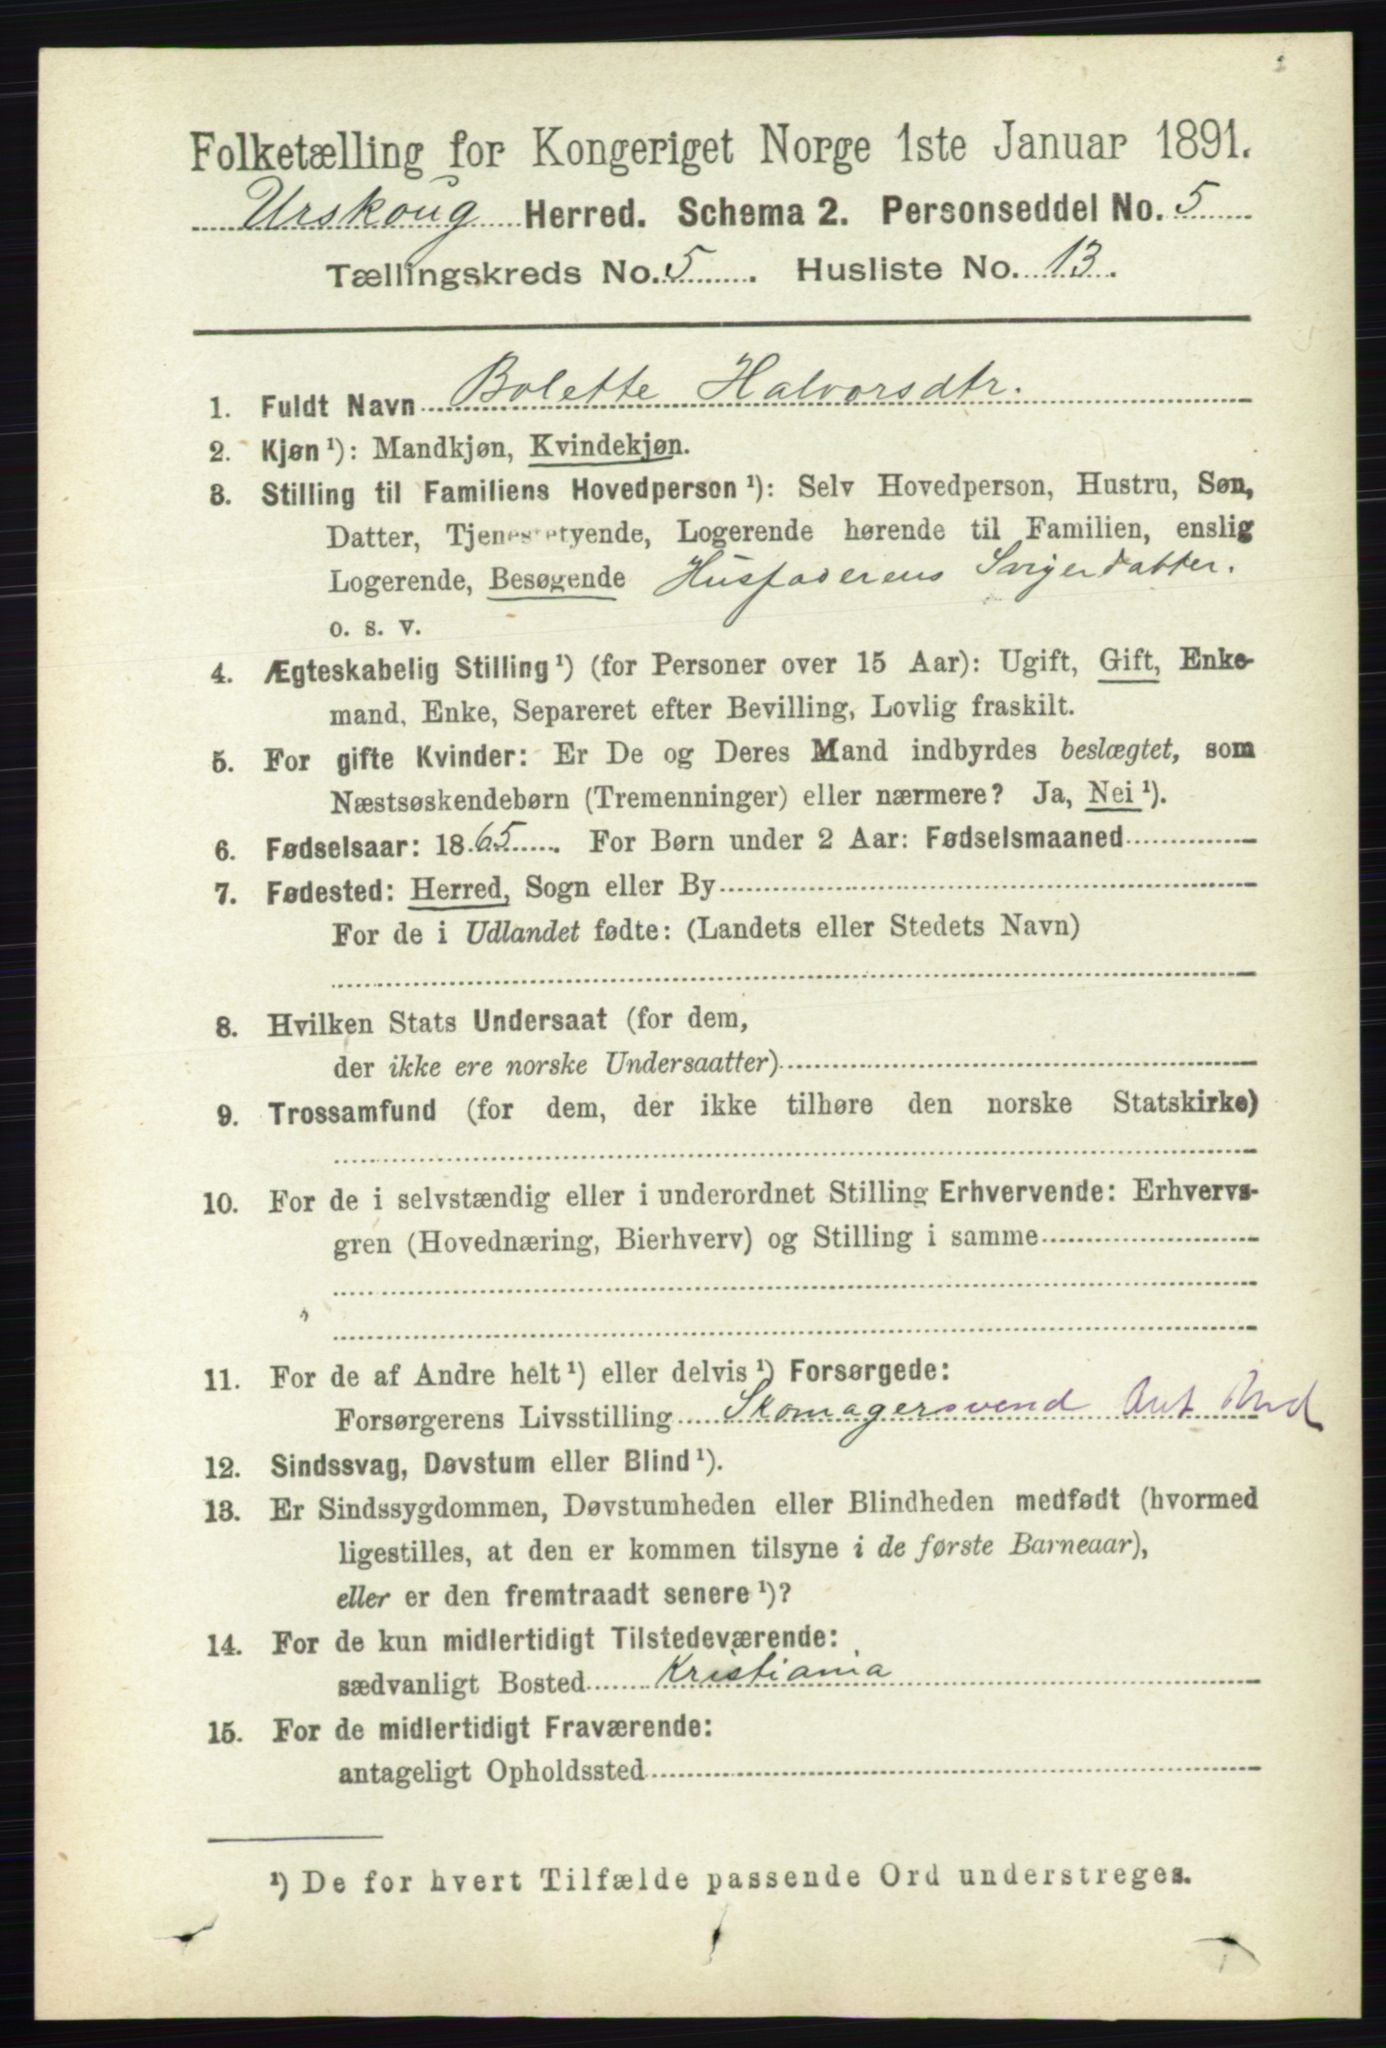 Folketælling for Kongeriget Norge 1ste Januar 1891.
Urskoug Herred. Schema 2. Personseddel No. 5
Tællingskreds No. 5. Husliste No. 13.
1. Fuldt Navn Bolette Halvorsdtr.
2. Kjøn ¹): Mandkjøn, Kvindekjøn.
3. Stilling til Familiens Hovedperson ¹): Selv Hovedperson, Hustru, Søn,
Datter, Tjenestetyende, Logerende hørende til Familien, enslig
Logerende, Besøgende Husfaderens Svigerdatter.
o. s. v.
4. Ægteskabelig Stilling ¹) (for Personer over 15 Aar): Ugift, Gift, Enke-
mand, Enke, Separeret efter Bevilling, Lovlig fraskilt.
5. For gifte Kvinder: Er De og Deres Mand indbyrdes beslægtet, som
Næstsøskendebørn (Tremenninger) eller nærmere? Ja, Nei ¹).
6. Fødselsaar: 1865. For Børn under 2 Aar: Fødselsmaaned
7. Fødested: Herred, Sogn eller By
For de i Udlandet fødte: (Landets eller Stedets Navn)
8. Hvilken Stats Undersaat (for dem,
der ikke ere norske Undersaatter)
9. Trossamfund (for dem, der ikke tilhøre den norske Statskirke)
10. For de i selvstændig eller i underordnet Stilling Erhvervende: Erhvervs-
gren (Hovednæring, Bierhverv) og Stilling i samme
11. For de af Andre helt ¹) eller delvis ¹) Forsørgede:
Forsørgerens Livsstilling Skomagersvend
12. Sindssvag, Døvstum eller Blind ¹).
13. Er Sindssygdommen, Døvstumheden eller Blindheden medfødt (hvormed
ligestilles, at den er kommen tilsyne i de første Barneaar),
eller er den fremtraadt senere ¹)?
14. For de kun midlertidigt Tilstedeværende:
sædvanligt Bosted Kristiania
15. For de midlertidigt Fraværende:
antageligt Opholdssted
¹) De for hvert Tilfælde passende Ord understreges.